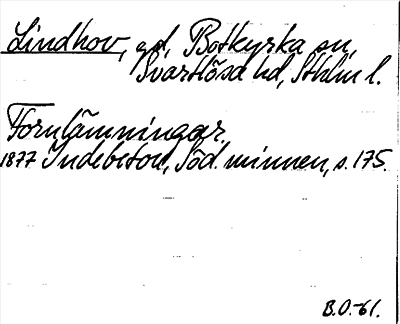 Lindhov, gd, Botkyrka sn,
Svartlösa hd, Sthlm l.
Fornlämningar.
1877 Indebetou, Söd. minnen, s. 175.
B.O.-61.